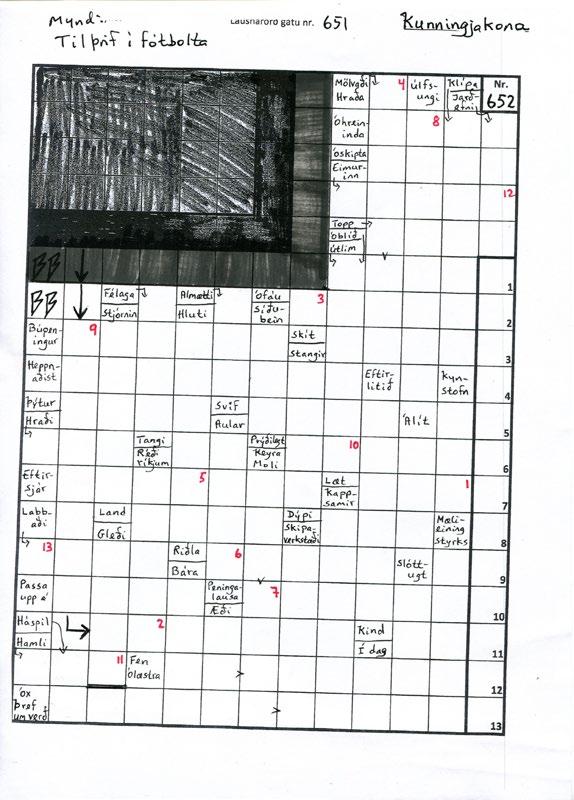 Mynd:
Tilþrif í fótbolta
Lausnarorð gátu nr. 651
Kunningjakona
Mölvaði
Hraða
4
Úlfs-
ungi
Klípa
Jarð-
efni
Nr.
652
Óhrein-
inda
8
Óskipta
Eimur-
inn
12
Topp
Óblíð
útlim
BB
BB
Félaga
Stjórnin
Almætti
Hluti
Ófáu
Síðu-
bein
3
1
Búpen-
ingur
9
Skít
Stangir
2
Heppn-
aðist
Eftir-
litið
Kyn-
stofn
3
Þýtur
Hraði
Svif
Aular
Álit
4
Tangi
Réð
ríkjum
Prýðilegt
Keyra
Moli
10
5
Eftir-
sjár
5
Læt
Kapp-
samir
1
6
Labb-
aði
Land
Gleði
Dýpi
Skipa-
verkstæði
Mæli-
eining
styrks
7
13
Riðla
Bára
6
Slótt-
ugt
8
Passa
upp á
Peninga-
lausa
Æði
7
9
Háspil
Hamli
2
Kind
Í dag
10
11
Fen
Ólæstra
11
Óx
Þref
um verð
12
13